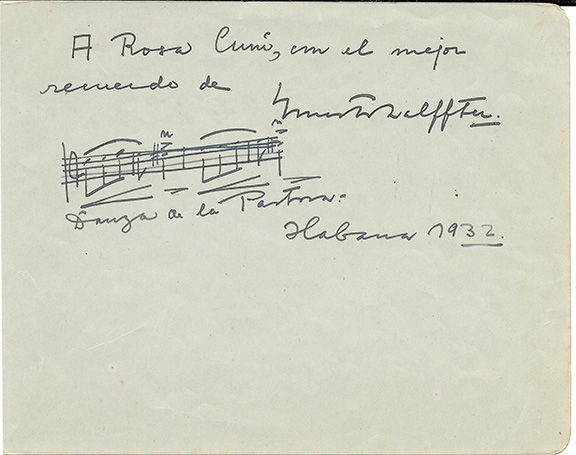 A Rosa Cuní, con el mejor
recuerdo de
Ernesto Halffter.
Danza de la Pastora.
Habana 1932.